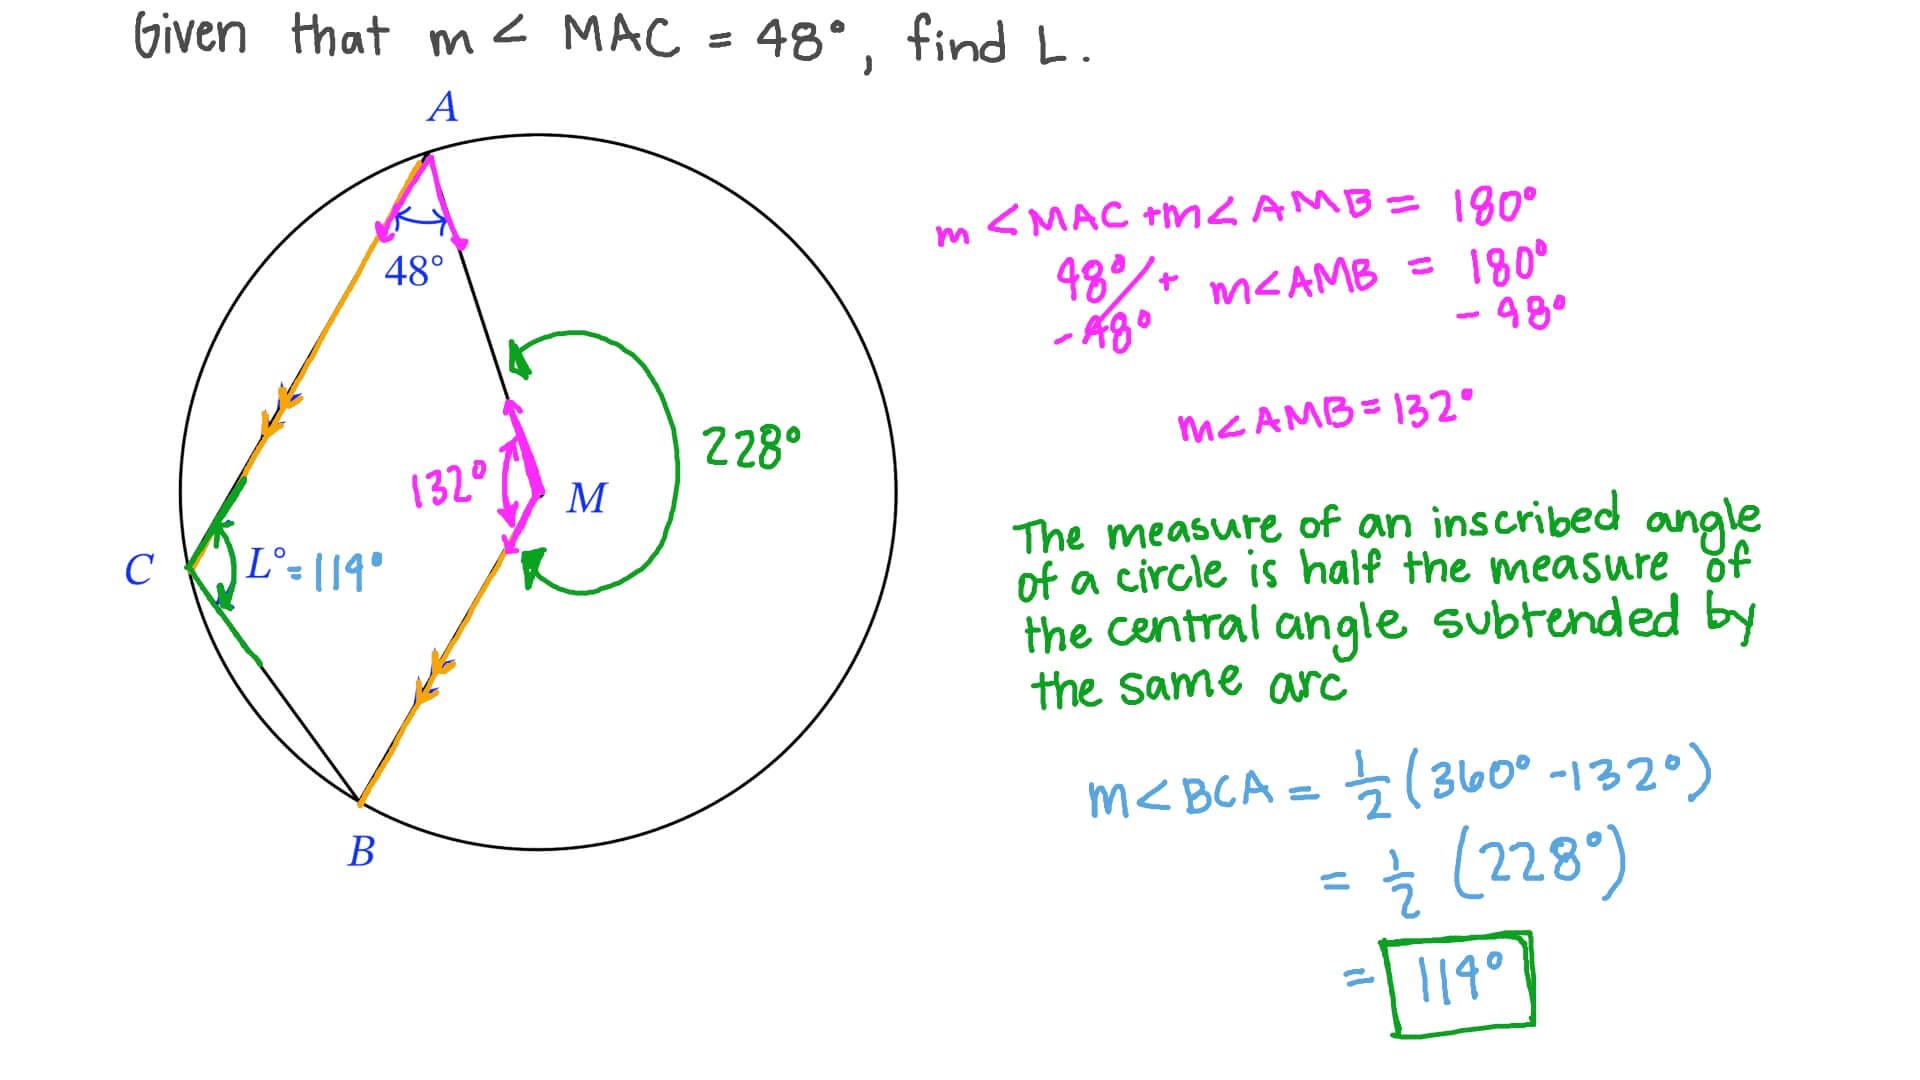 Given that m∠ MAC = 48°, find L.
A
48°
228°
132°
M
C
L° = 114°
B
m∠MAC + m∠AMB = 180°
48° + m∠AMB = 180°
-48° -48°
m∠AMB = 132°
The measure of an inscribed angle
of a circle is half the measure of
the central angle subtended by
the same arc
m∠BCA = 1/2 (360° - 132°)
= 1/2 (228°)
= 114°